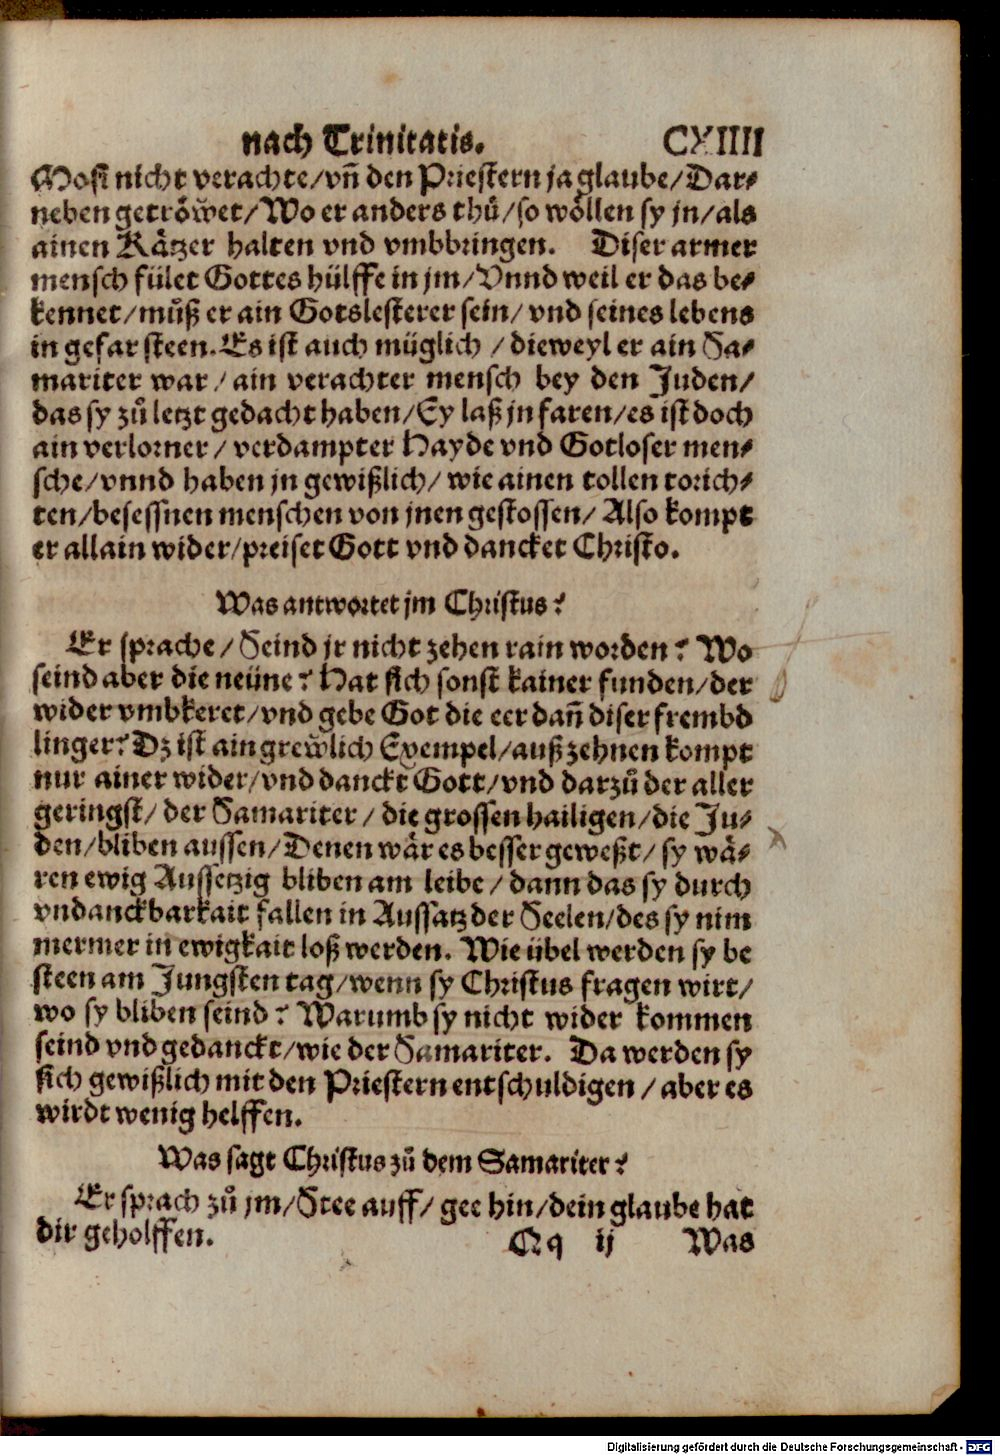 nach Trinitatis. CXIIII
Mosi nicht verachte/vñ den Priestern ja glaube/Dar⸗
neben getröwet/Wo er anders thů/so wöllen sy jn/als
ainen Kätzer halten vnd vmbbringen. Diser armer
mensch fület Gottes hülffe in jm/Vnnd weil er das be⸗
kennet/můß er ain Gotslesterer sein/vnd seines lebens
in gefar steen. Es ist auch müglich/dieweyl er ain Sa⸗
mariter war/ain verachter mensch bey den Juden/
das sy zů letzt gedacht haben/Ey laß jn faren/es ist doch
ain verlorner/verdampter Hayde vnd Gotloser men⸗
sche/vnnd haben jn gewißlich/wie ainen tollen torich⸗
ten/besessnen menschen von jnen gestossen/Also kompt
er allain wider/preiset Gott vnd dancket Christo.
Was antwortet jm Christus?
Er sprache/Seind jr nicht zehen rain worden? Wo
seind aber die neüne? Hat sich sonst kainer funden/der
wider vmbkeret/vnd gebe Got die eer dañ diser frembd
linger? Dz ist ain grewlich Exempel/auß zehnen kompt
nur ainer wider/vnd danckt Gott/vnd darzů der aller
geringst/der Samariter/die grossen hailigen/die Ju⸗
den/bliben aussen/Denen wär es besser geweßt/sy wä⸗
ren ewig Aussetzig bliben am leibe/dann das sy durch
vndanckbarkait fallen in Aussatz der Seelen/des sy nim
mermer in ewigkait loß werden. Wie übel werden sy be
steen am Jungsten tag/wenn sy Christus fragen wirt/
wo sy bliben seind? Warumb sy nicht wider kommen
seind vnd gedanckt/wie der Samariter. Da werden sy
sich gewißlich mit den Priestern entschuldigen/aber es
wirdt wenig helffen.
Was sagt Christus zů dem Samariter?
Er sprach zů jm/Stee auff/gee hin/dein glaube hat
dir geholffen.
Qq ij Was
Digitalisierung gefördert durch die Deutsche Forschungsgemeinschaft - DFG